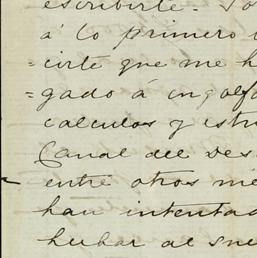 escribirte. Po
á lo primero
=cirte que me h
=gado á engolfa
calculos y estu
Canal del Des
entre otros me
han intentad
hubar al sue